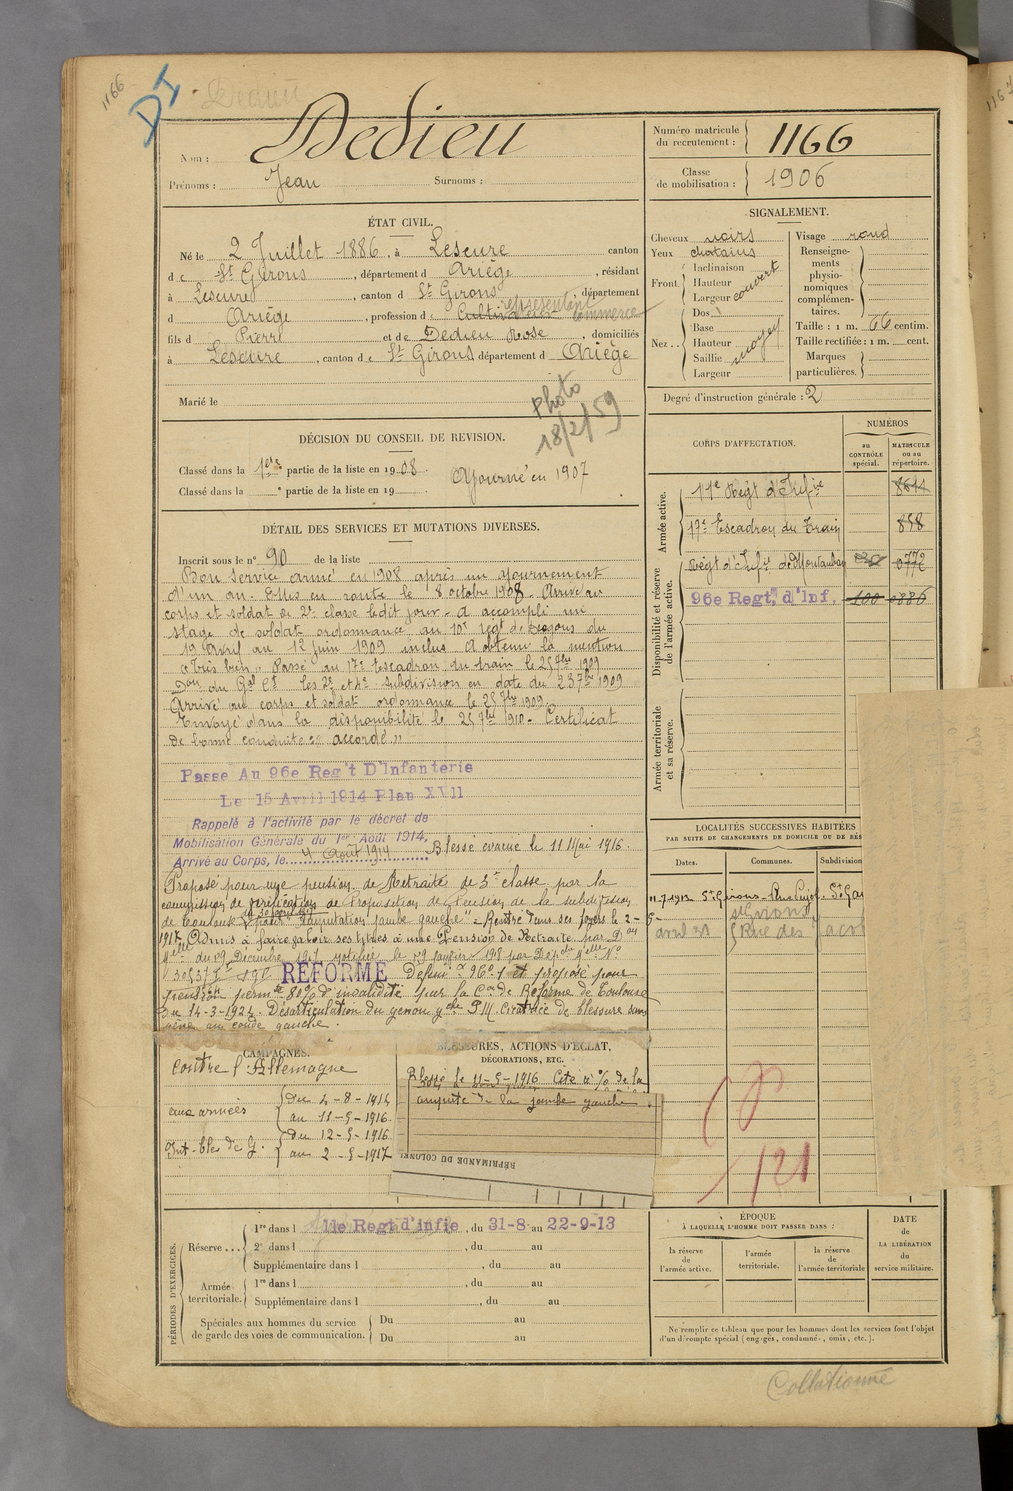 1166
DI
Dedieu
Nom : Dedieu
Prénoms : Jean Surnoms :
Numéro matricule du recrutement : 1166
Classe de mobilisation : 1906
ÉTAT CIVIL.
Né le 2 Juillet 1886, à Lescure canton
de St Girons, département d Ariège, résidant
à Lescure, canton d St Girons, département
représentant
d Ariège, profession de Cultivateur commerce
fils d Pierre et de Dedieu Rose, domiciliés
à Lescure, canton de St Girons département d Ariège
Marié le
Photo
18/2/59
SIGNALEMENT.
Cheveux noirs
Yeux chatains
Front. Inclinaison
Hauteur
Largeur couvert
Nez.. Dos
Base
Hauteur
Saillie moyen
Largeur
Visage rond
Renseignements physionomiques complémentaires.
Taille : 1 m. 66 centim.
Taille rectifiée : 1 m. cent.
Marques particulières.
Degré d'instruction générale : 2
DÉCISION DU CONSEIL DE REVISION.
Classé dans la 1ère partie de la liste en 1908.
Classé dans la e partie de la liste en 19
Ajourné en 1907
CORPS D'AFFECTATION.
NUMÉROS
au CONTRÔLE spécial.
MATRICULE ou au répertoire.
Armée active.
11e Regt d'Infie 8614
17e Escadron du Train 858
Disponibilité et réserve de l'armée active.
Regt d'Infie de Montauban 0772
96e Regt, d'Inf. 100 0886
Armée territoriale et sa réserve.
DÉTAIL DES SERVICES ET MUTATIONS DIVERSES.
Inscrit sous le n° 90 de la liste
Bon service armé en 1908 après un ajournement
d'un an. Mis en route le 8 octobre 1908. Arrivé au
corps et soldat de 2e classe ledit jour. A accompli un
stage de soldat ordonnance au 10e regt de Dragons du
19 Avril au 12 juin 1909 inclus. A obtenu la mention
« Très bien ». Passé au 17e Escadron du train le 25 7bre 1909
Don du Gal Ct les 2e et 4e subdivision en date du 23 7bre 1909
Arrivé au corps et soldat ordonnance le 25 7bre 1909.
Envoyé dans la disponibilité le 25 7bre 1910. Certificat
de bonne conduite « accordé »
Passe Au 96e Reg't D'Infanterie
Le 15 Avril 1914 Plan XVII
Rappelé à l'activité par le décret de
Mobilisation Générale du 1er Août 1914,
Arrivé au Corps, le 4 Août 1914 Blessé évacué le 11 Mai 1916.
Proposé pour une pension de Retraite de 3e classe par la
commission de vérification de proposition de pension de la subdivision
de Toulouse "amputation jambe gauche". Rentré dans ses foyers le 2-5-
1917. Admis à faire valoir ses titres à une Pension de Retraite par Don
Mелle du 09 Décembre 1917 notifiée le 09 janvier 1918 par Dépe Melle N°
REFORME Définive et proposé pour
pension perm 80% d'invalidité par la Con de Réforme de Toulouse
du 14-3-1922. Désarticulation du genou gche P.M. Cicatrice de blessure sans
gêne au coude gauche.
LOCALITÉS SUCCESSIVES HABITÉES
PAR SUITE DE CHANGEMENTS DE DOMICILE OU DE RÉS
Dates. Communes. Subdivision
11-7-1912 St Girons St Gau
St Girons
avril 31 Rue des
CAMPAGNES.
Contre l'Allemagne
aux armées du 4-8-1914
au 11-5-1916
Int. bles de G. du 12-5-1916
au 2-5-1917
BLESSURES, ACTIONS D'ÉCLAT,
DÉCORATIONS, ETC.
Blessé le 11-5-1916 Cité
amputé de la jambe gauche.
RÉPRIMANDE DU COLONEL
121
PÉRIODES D'EXERCICES.
Réserve... 1re dans l 11e Regt d'infie, du 31-8 au 22-9-13
2e dans l , du au
Supplémentaire dans l , du au
Armée territoriale. 1re dans l , du au
Supplémentaire dans l , du au
Spéciales aux hommes du service de garde des voies de communication. Du au
Du au
ÉPOQUE
À LAQUELLE L'HOMME DOIT PASSER DANS :
la réserve de l'armée active.
l'armée territoriale.
la réserve de l'armée territoriale
DATE
de
LA LIBÉRATION
du
service militaire.
Ne remplir ce tableau que pour les hommes dont les services font l'objet
d'un décompte spécial (engagés, condamnés, omis, etc.).
Collationné